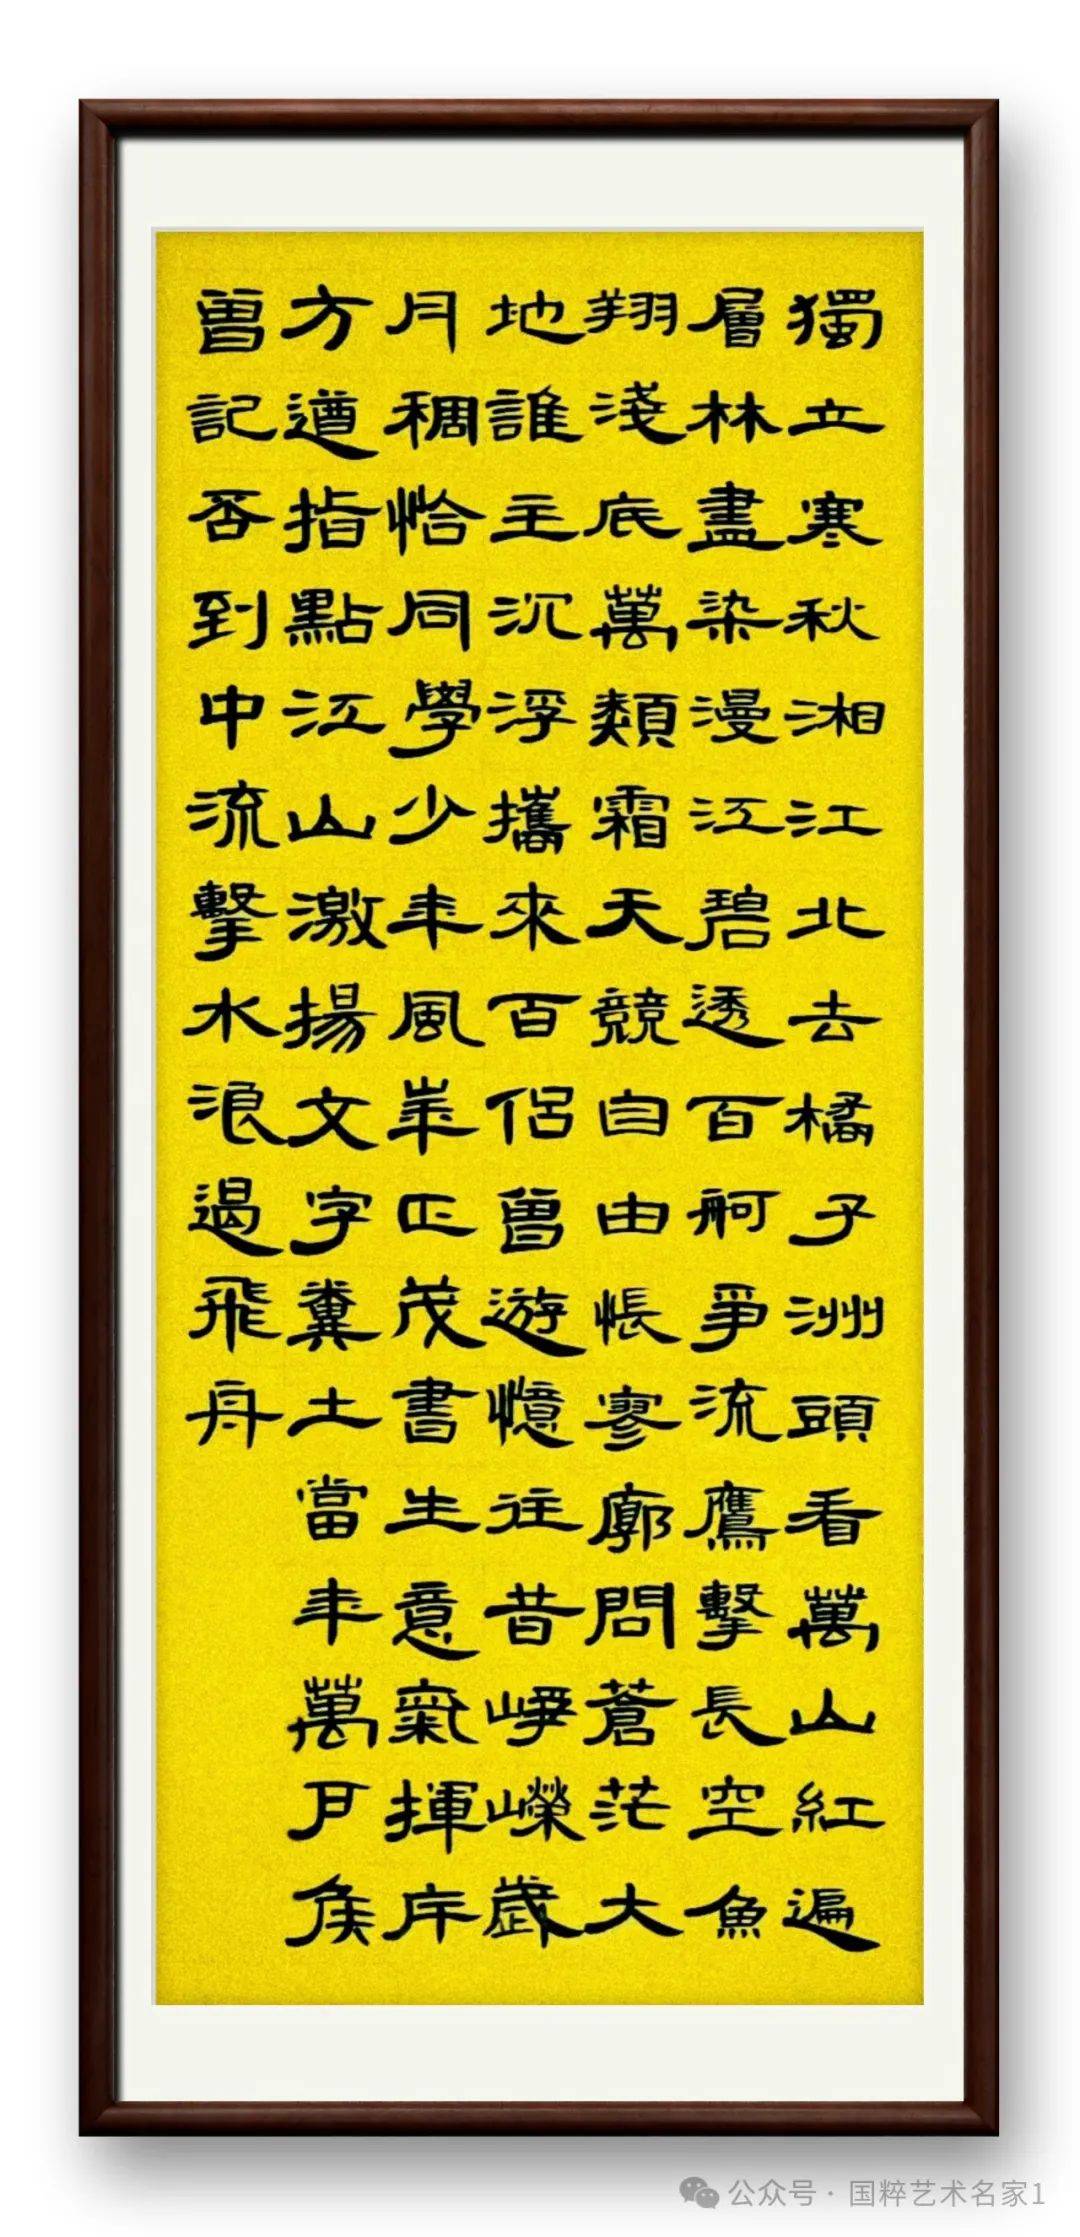 獨立寒秋湘江北去橘子洲頭看萬山紅遍
層林盡染漫江碧透百舸爭流鷹擊長空魚
翔淺底萬類霜天競自由悵寥廓問蒼茫大
地誰主沉浮攜來百侶曾遊憶往昔崢嶸歲
月稠恰同學少年風華正茂書生意氣揮斥
方遒指點江山激揚文字糞土當年萬戶侯
曾記否到中流擊水浪遏飛舟
公众号·国粹艺术名家1